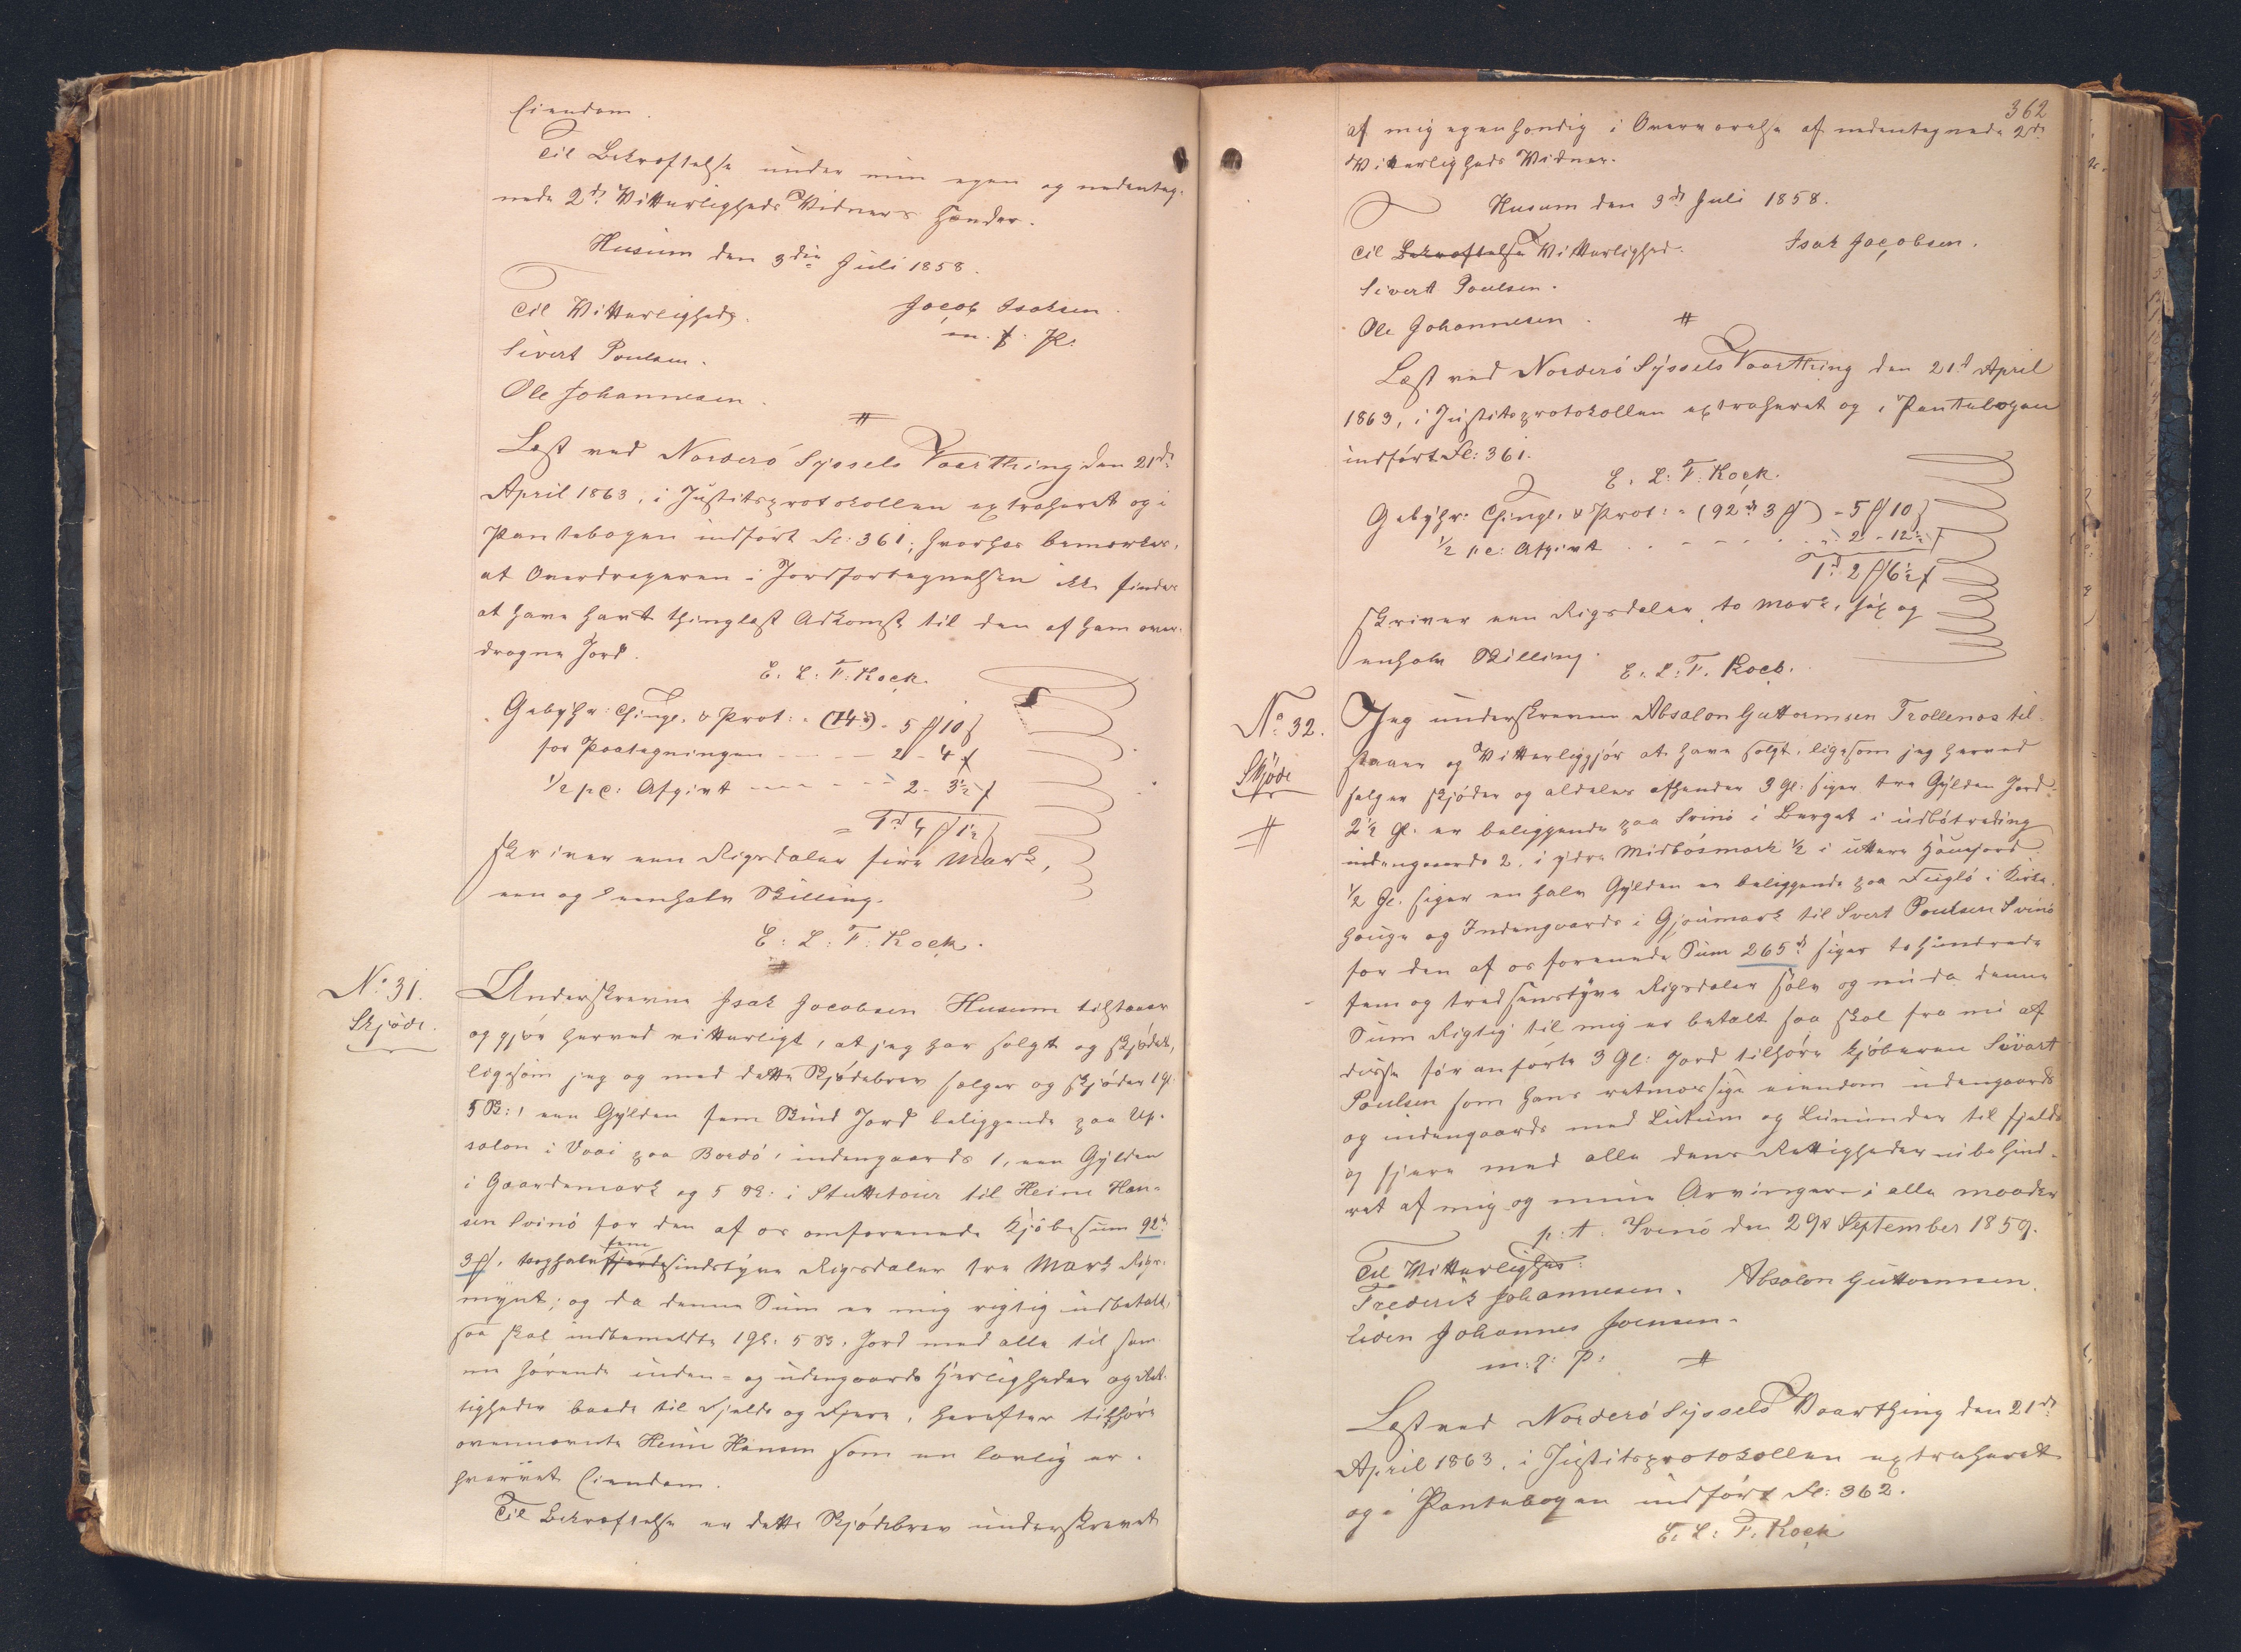 Eiendom.
Til Bekræftelse under min egen og undenteg-
nede 2de Vitterligheds Vidners Hænder.
Husum den 3die Juli 1858.
Til Vitterlighed.
Jacob Isaksen.
m. f. P.
Sivert Poulsen.
Ole Johannesen.
#
Læst ved Norderö Syssels Vaarthing den 21de
April 1863, i Justitsprotokollen extraheret og i
Pantebogen indført Fol: 361, hvorhos bemærkes,
at Overdrageren i Jordfortegnelsen ikke findes
at have havt thinglæst Adkomst til den af ham over-
dragne Jord.
E. L: F: Kock.
Gebyhr: Thingl. & Prot: = (74 rd) - 5 ß 10
for Paategningen - - - - 2 - 4
1/2 pc: Afgivt - - - - 2 - 3 1/2
= 1 rd 4 ß 1 1/2
skriver een Rigsdaler fire Mark,
een og eenhalv Skilling.
E: L: F: Kock.
#
No. 31.
Skjøde.
Underskrevne Isak Jacobsen Husum tilstaaer
og gjør herved vitterligt, at jeg har solgt og skjødet,
ligesom jeg og med dette Skjødebrev sælger og skjøder 1 Gl.
5 Sk:, een Gylden fem Skind Jord beliggende paa Up-
salon i Vaai paa Bordö, indengaards 1, een Gylden
i Gaardemark og 5 Sk: i Stuttetoir til Heine Han-
sen Svinö for den af os omforenede Kjöbesum 92 rd
3 ß, toghalv fjerde fem sindstyve Rigsdaler tre Mark Rigs-
mynt; og da denne Sum er mig rigtig udbetalt,
saa skal indbemeldte 1 Gl: 5 Sk. Jord med alle til sam-
me hörende inden- og udengaards Herligheder og Ret-
tigheder baade til Fjelds og Fjære, herefter tilhöre
ovennævnte Heine Hansen som en lovlig er-
hvervet Eiendom.
Til Bekræftelse er dette Skjödebrev underskrevet
362
af mig egenhændig i Overværelse af undentegnede 2de
Vitterligheds Vidner.
Husum den 3de Juli 1858.
Til Bekræftelse Vitterlighed.
Isak Jacobsen.
Sivert Poulsen.
Ole Johannesen.
#
Læst ved Norderö Syssels Vaarthing den 21de April
1863, i Justitsprotokollen extraheret og i Pantebogen
indfört Fol: 361.
E. L: F: Kock.
Gebyhr: Thingl. & Prot: = (92 rd 3 ß) - 5 ß 10
1/2 pc: Afgivt - - - - 2 - 12 1/2
1 rd 2 ß 6 1/2
skriver een Rigsdaler to Mark, sex og
enhalv Skilling.
E. L: F. Kock.
No. 32.
Skjöde
#
Jeg underskrevne Absalon Guttormsen Trollenæs til-
staaer og Vitterliggjör at have solgt, ligesom jeg herved
sælger skjöder og aldeles afhænder 3 Gl: siger tre Gylden Jord
2 1/2 Gl. er beliggende paa Svinö i Bergat i udbötreding
indengaards 2. i ydre Midbösmark 1/2 i uttara Hövejord.
1/2 Gl. siger en halv Gylden er beliggende paa Fuglö i Kirke-
houge og Indengaards i Gjoumark til Svert Poulsen Svinö
for den af os forenede Sum 265 rd siger to hundrede
fem og tredsenstyve Rigsdaler sölv og nu da denne
Sum Rigtig til mig er betalt saa skal fra nu af
disse för anförte 3 Gl: Jord tilhöre kjöberen Sivart
Poulsen som hans retmæssige eiendom udengaards
og indengaards med Lutum og Lunnender til fjelds
og fjære med alle dens Rettigheder ubehind-
ret af mig og mine Arvinger i alle maader
p: t. Svinö den 29de September 1859.
Til Vitterlighed:
Frederik Johannesen.
Absalon Guttormsen.
Liden Johannes Joensen.
m: f: P:
#
Læst ved Norderö Syssels Vaarthing den 21de
April 1863, i Justitsprotokollen extraheret
og i Pantebogen indfört Fol: 362.
E. L: F. Kock